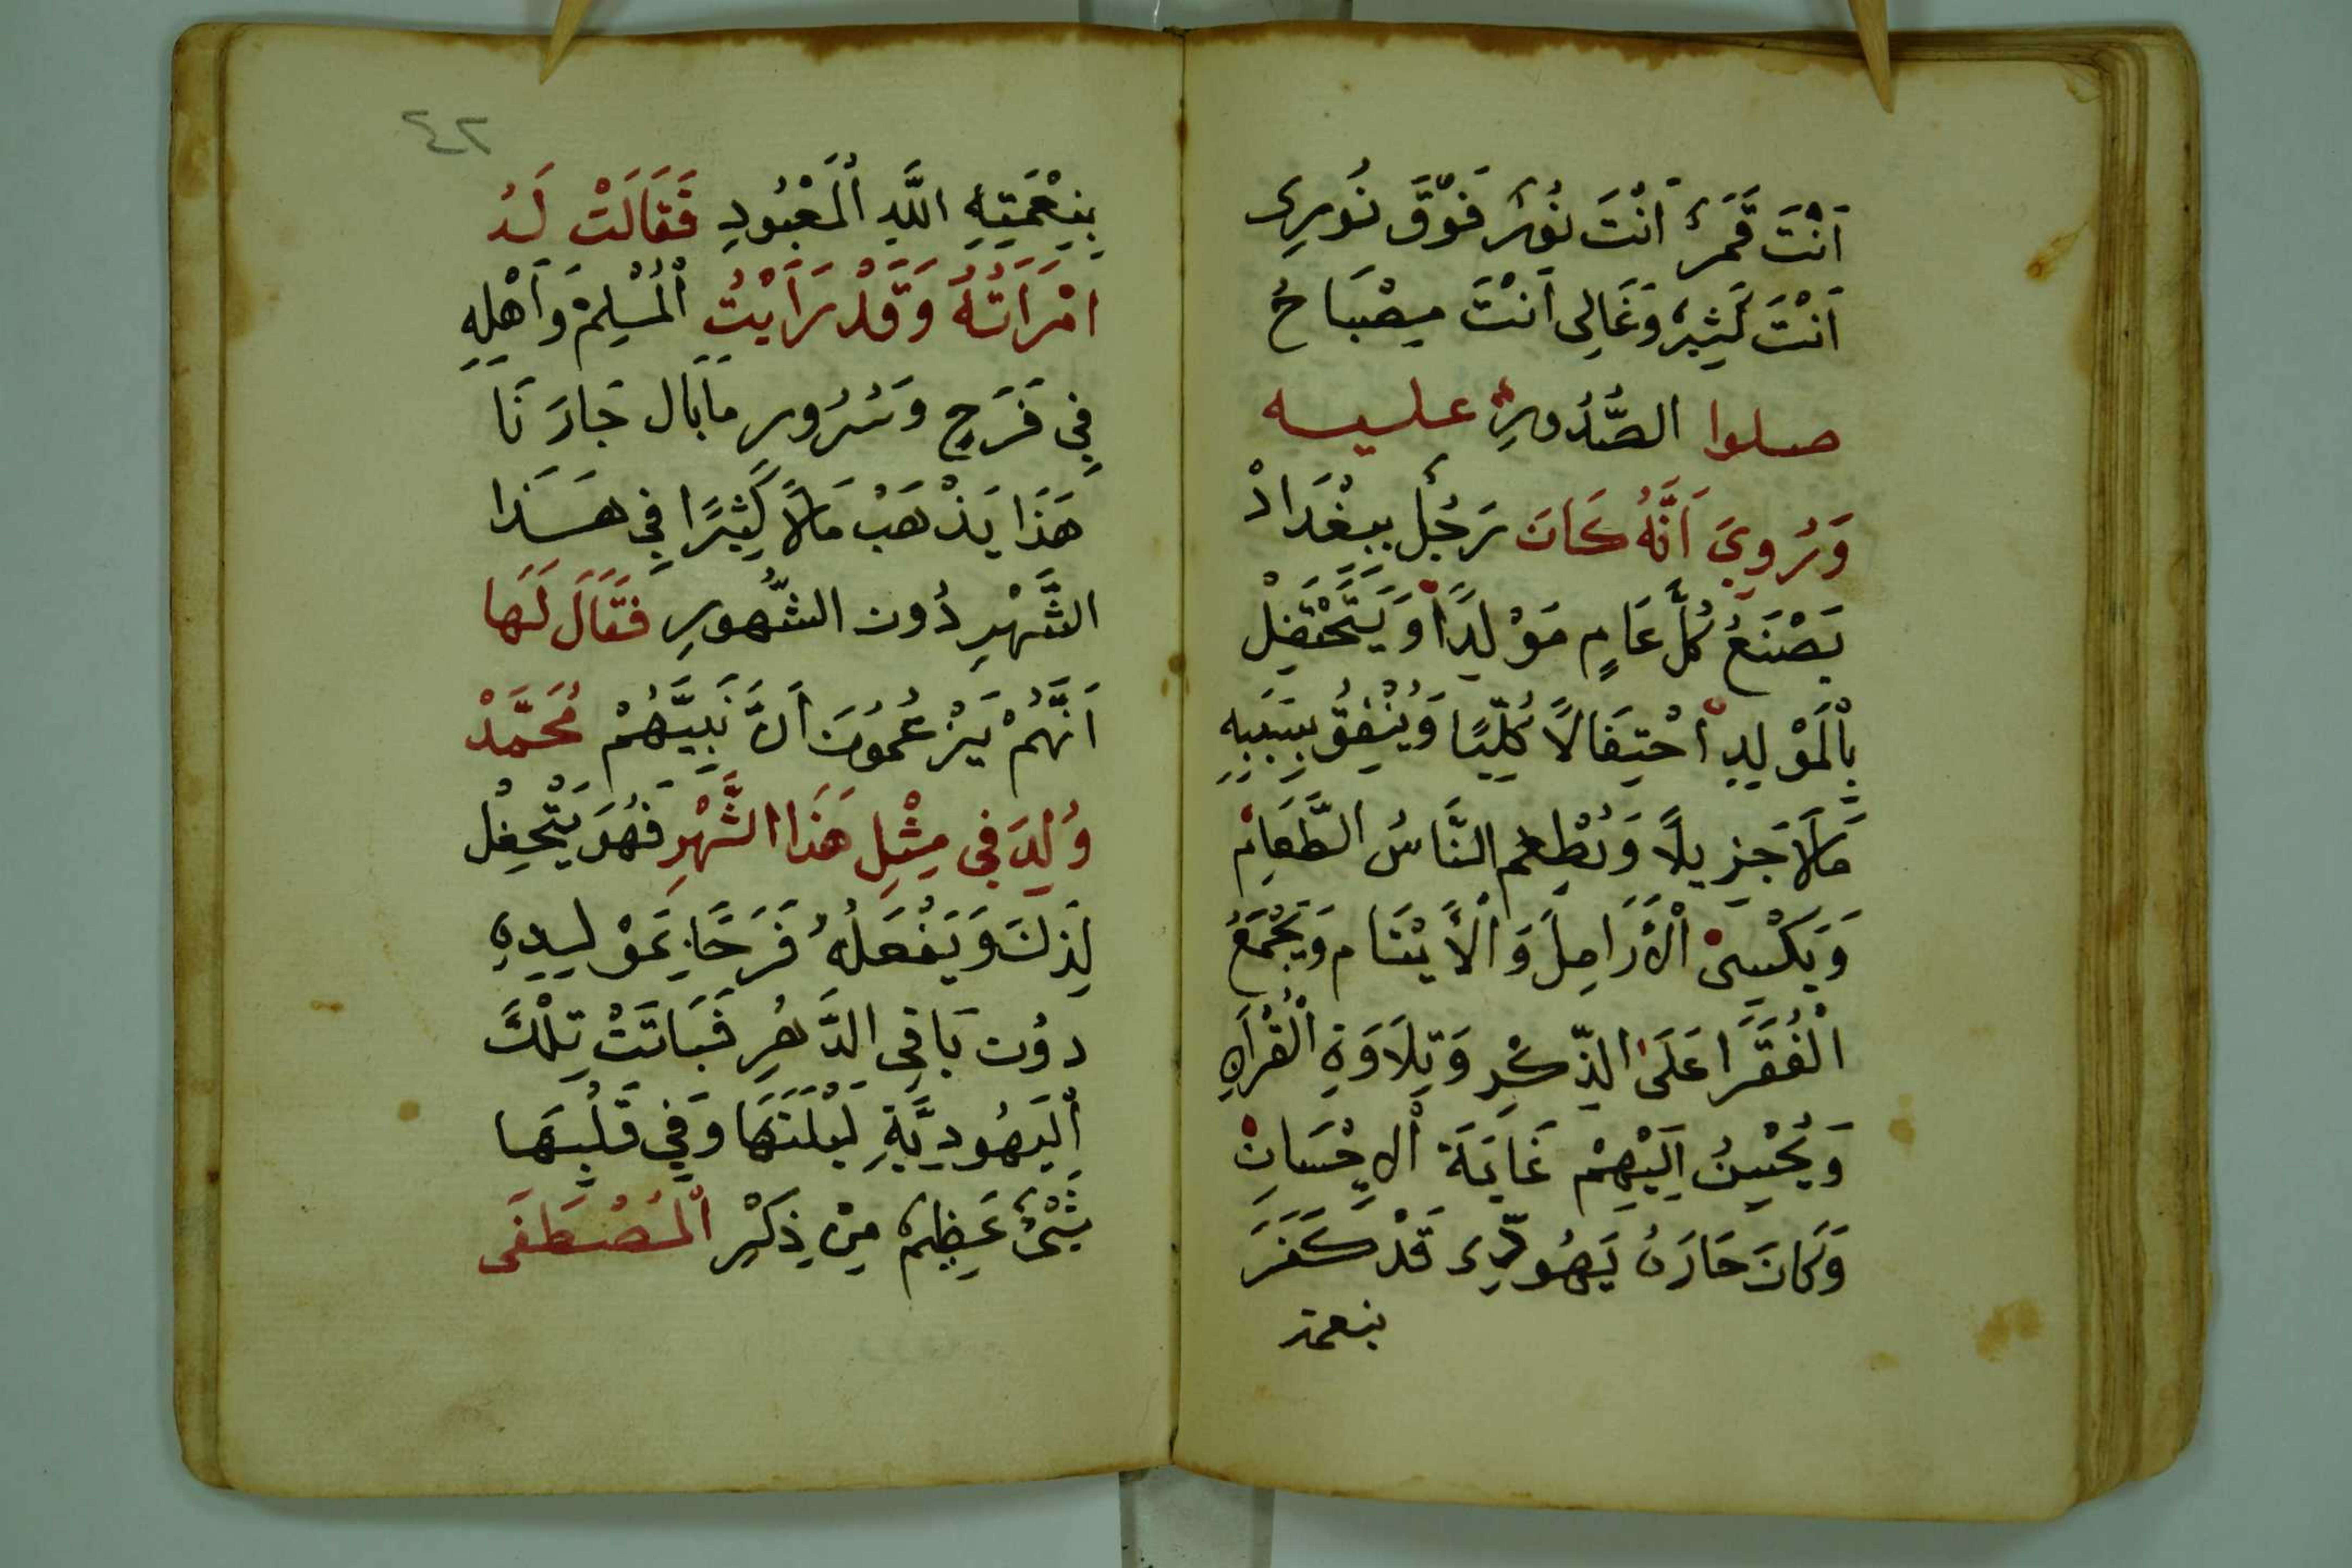 اَنْتَ قَمَرٌ اَنْتَ نُورٌ فَوْقَ نُورِى
اَنْتَ كَثِيرٌ وَغَالِى اَنْتَ مِصْبَاحُ
صلوا الصُّدُورِ عليه
وَرُوِيَ اَنَّهُ كَانَ رَجُلٌ بِبَغْدَادْ
يَصْنَعُ كُلَّ عَامٍ مَوْلِدًا وَيَحْتَفِلْ
بِالْمَوْلِدِ اْحْتِفَالاً كُلِّيًا وَيُنْفِقُ بِسَبَبِهِ
مَالاً جَزِيلاً وَيُطْعِم النَّاسُ الطَّعَامِ
وَيَكْسِىْ الْاَرَامِلَ وَالْاَيْتَام وَيَجْمَعُ
الْفُقَرَا عَلَى الذِّكْرِ وَتِلَاوَةِ الْقُرْاَنِ
وَيُحْسِنُ اِلَيْهِمْ غَايَةَ الْاِحْسَانِ
وَكَانَ جَارَهُ يَهُودِّى قَدْ كَفَرَ
بنعمة
٤٢
بِنِعْمَتِهِ اللَّهِ الْمَعْبُودِ فَقَالَتْ لَهُ
امْرَاَتَهُ وَقَدْ رَاَيْتُ الْمُسْلِمْ وَاَهْلِهِ
فِي فَرَحٍ وَسُرُورٍ مَا بَال جَارَنَا
هَذَا يَذْهَبْ مَالاً كَثِيرًا فِي هَذَا
الشَّهْرِ دُون الشُّهورِ فَقَالَ لَهَا
اَنَّهُمْ يَزْعُمُونَ اَنَّ نَبِيَّهُمْ مُحَمَّدْ
وُلِدَ في مِثْلِ هَذَا الشَّهْرِ فَهُوَ يَتْحِفِلْ
لِذِلكَ وَيَفْعَلُهُ فَرَحًا بِمَوْلِدِهِ
دُون بَاقِى الدَّهْرِ فَبَاتَتْ تِلْكَ
الْيَهُودِيَّةِ لَيْلَتَهَا وَفِي قَلْبِهَا
شَىْئٌ عَظِيمٌ مِنْ ذِكْرِ الْمُصْطَفَى